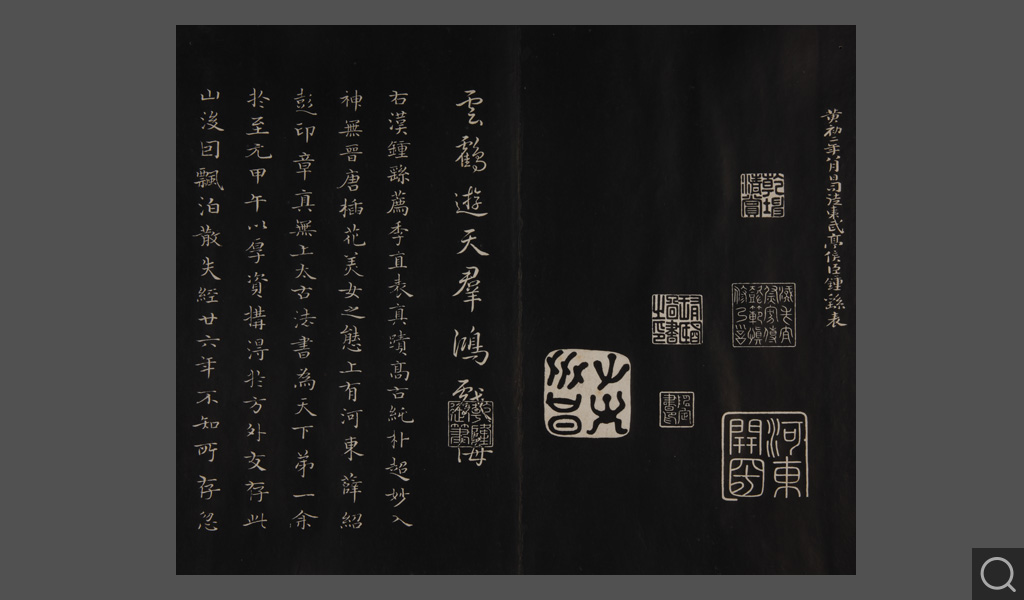 黄初二年八月日司徒東武亭侯臣鍾繇表
乾坤清賞
河東開國
雲鶴遊天羣鴻戲海
右漢鍾繇薦季直表真蹟高古純朴超妙入
神無晉唐插花美女之態上有河東薛紹
彭印章真無上太古法書為天下第一余
於至元甲午以厚資購得於方外友存此
山後因飄泊散失經廿六年不知所存忽